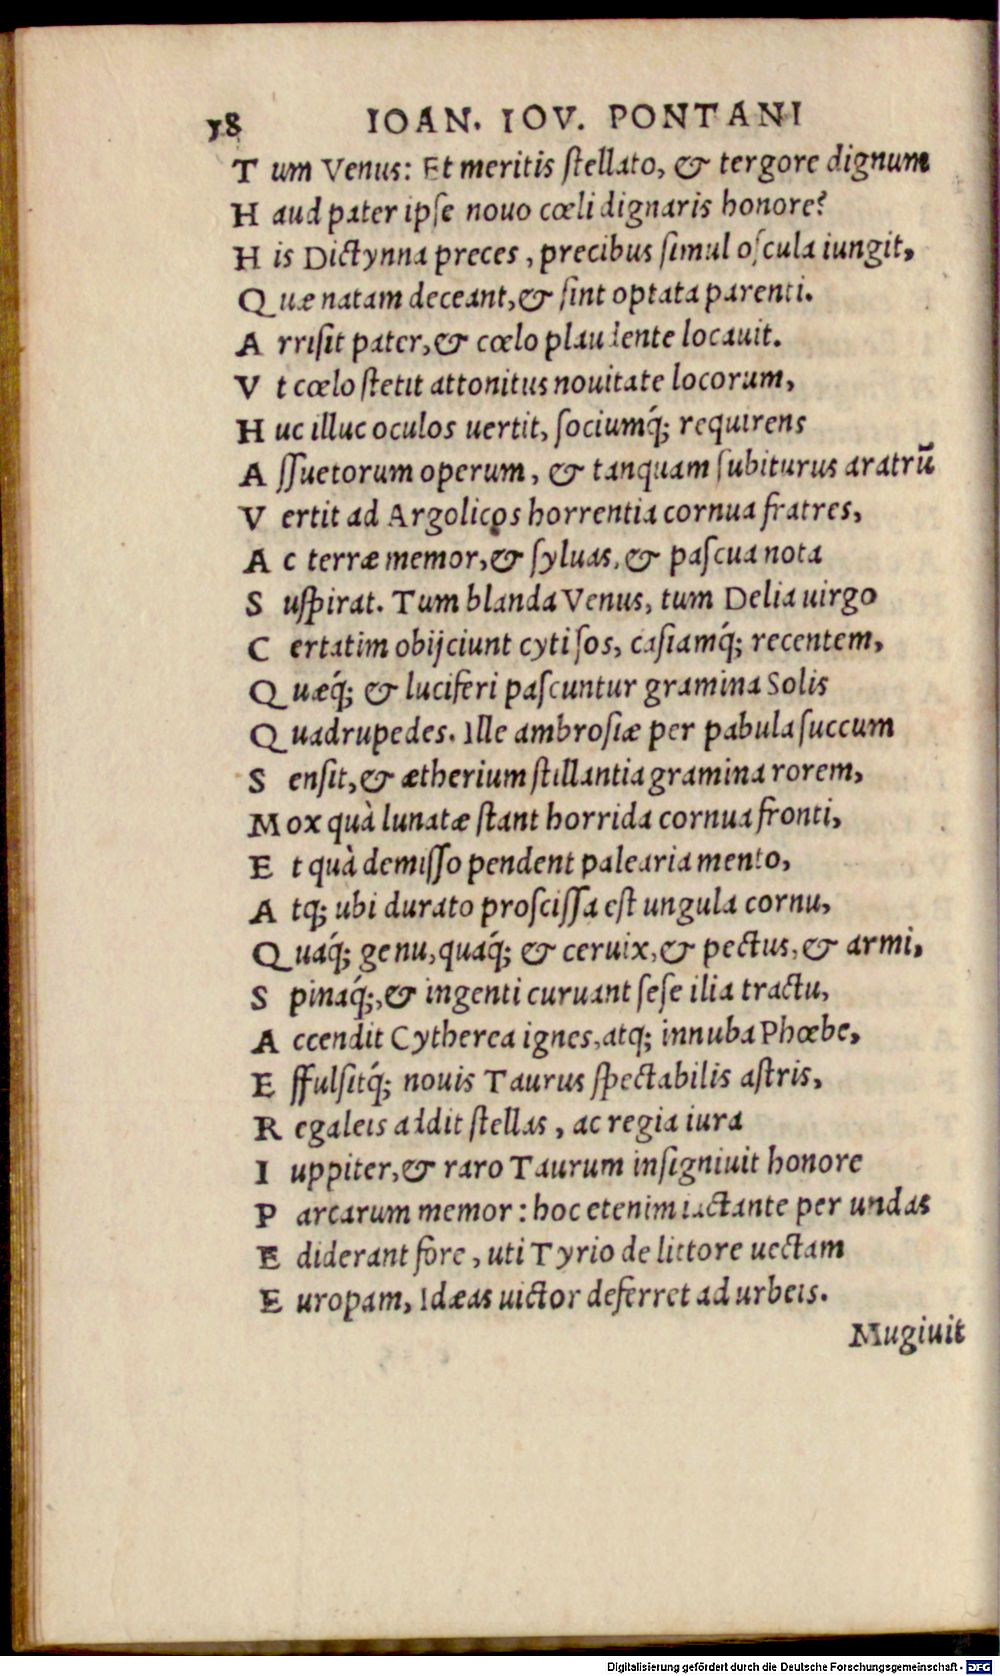 58 IOAN. IOV. PONTANI
T um Venus: Et meritis ſtellato, & tergore dignum
H aud pater ipſe nouo cœli dignaris honore?
H is Dictynna preces, precibus ſimul oſcula iungit,
Q uæ natam deceant, & ſint optata parenti.
A rriſit pater, & cœlo plaudente locauit.
V t cœlo ſtetit attonitus nouitate locorum,
H uc illuc oculos uertit, ſociumq́; requirens
A ſſuetorum operum, & tanquam ſubiturus aratrū
V ertit ad Argolicos horrentia cornua fratres,
A c terræ memor, & ſyluas, & paſcua nota
S uſpirat. Tum blanda Venus, tum Delia uirgo
C ertatim obijciunt cytiſos, caſiamq́; recentem,
Q uæq́; & luciferi paſcuntur gramina Solis
Q uadrupedes. Ille ambroſiæ per pabula ſuccum
S enſit, & ætherium ſtillantia gramina rorem,
M ox quà lunatæ ſtant horrida cornua fronti,
E t quà demiſſo pendent palearia mento,
A tq; ubi durato proſciſſa eſt ungula cornu,
Q uaq́; genu, quaq́; & ceruix, & pectus, & armi,
S pinaq́;, & ingenti curuant ſeſe ilia tractu,
A ccendit Cytherea ignes, atq; innuba Phœbe,
E ffulſitq́; nouis Taurus ſpectabilis aſtris,
R egaleis addit ſtellas, ac regia iura
I uppiter, & raro Taurum inſigniuit honore
P arcarum memor: hoc etenim iactante per undas
E diderant fore, uti Tyrio de littore uectam
E uropam, Idæas uictor deferret ad urbeis.
Mugiuit
Digitalisierung gefördert durch die Deutsche Forschungsgemeinschaft - DFG